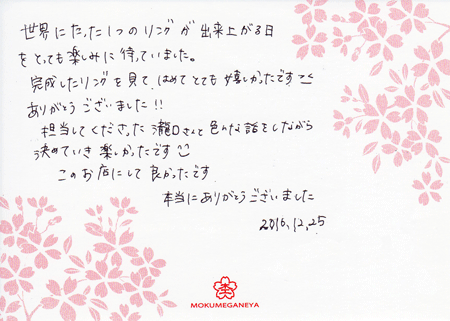 世界にたった1つのリングが出来上がる日
をとっても楽しみに待っていました。
完成したリングを見て、はめてとても嬉しかったです
ありがとうございました!!
担当してくださった瀧口さんと色んな話をしながら
決めていき楽しかったです
このお店にして良かったです
本当にありがとうございました
2016.12.25
MOKUMEGANEYA